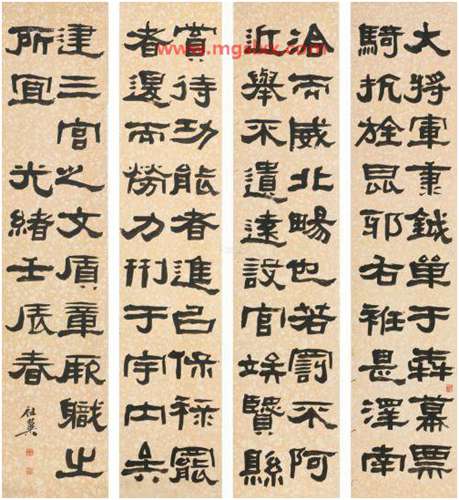 大將軍秉鉞單于犇幕票
騎抗旌昆邪右衽是澤南
洽而威北暢也若罰不阿
近舉不遺遠設官竢賢縣
賞待功能者進以保祿罷
者退而勞力刑于宇內矣
建三宮之文質章厥職之
所宜 光緒壬辰春